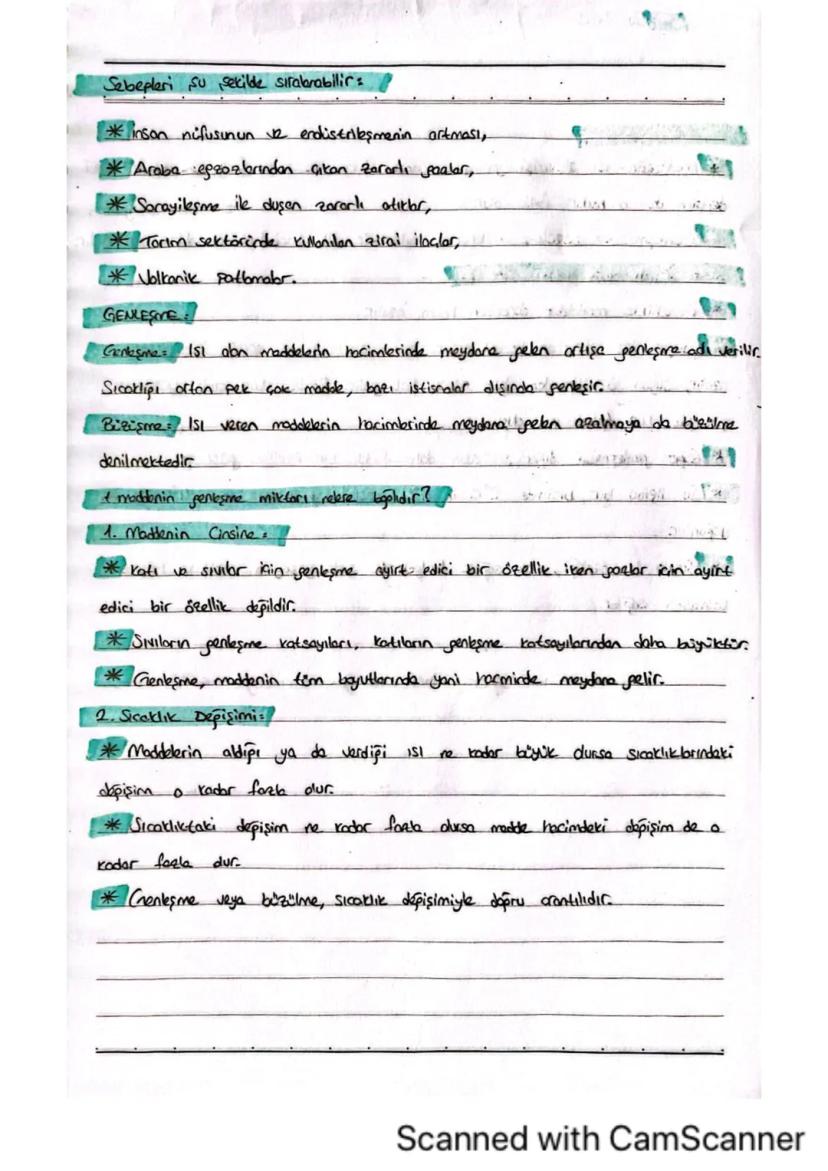 Sebepleri şu şekilde sıralanabilir:
* İnsan nüfusunun ve endistrileşmenin artması,
* Araba egzozlarından çıkan zararlı gazlar,
* Sanayileşme ile duşen zararlı atıklar,
* Tarım sektöründe kullanılan zirai ilaçlar,
* Volkanik patlamalar.
GENLEŞME:
Genleşme: Isı alan maddelerin hacimlerinde meydana gelen artışa genleşme adı verilir.
Sıcaklığı artan pek çok madde, bazı istisnalar dışında genleşir.
Büzüşme: Isı veren maddelerin hacimlerinde meydana gelen azalmaya da büzülme
denilmektedir.
1 maddenin genleşme miktarı nelere bağlıdır?
1. Maddenin Cinsine:
* Katı ve sıvılar için genleşme ayırt edici bir özellik iken gazlar için ayırt
edici bir özellik değildir.
* Sıvıların genleşme katsayıları, katıların genleşme katsayılarından daha büyüktür.
* Genleşme, maddenin tüm boyutlarında yani hacminde meydana gelir.
2. Sıcaklık Değişimi:
* Maddelerin aldığı ya da verdiği ısı ne kadar büyük olursa sıcaklıklarındaki
değişim o kadar fazla olur.
* Sıcaklıktaki değişim ne kadar fazla olursa madde hacimdeki değişim de o
kadar fazla olur.
* Genleşme veya büzülme, sıcaklık değişimiyle doğru orantılıdır.
Scanned with CamScanner